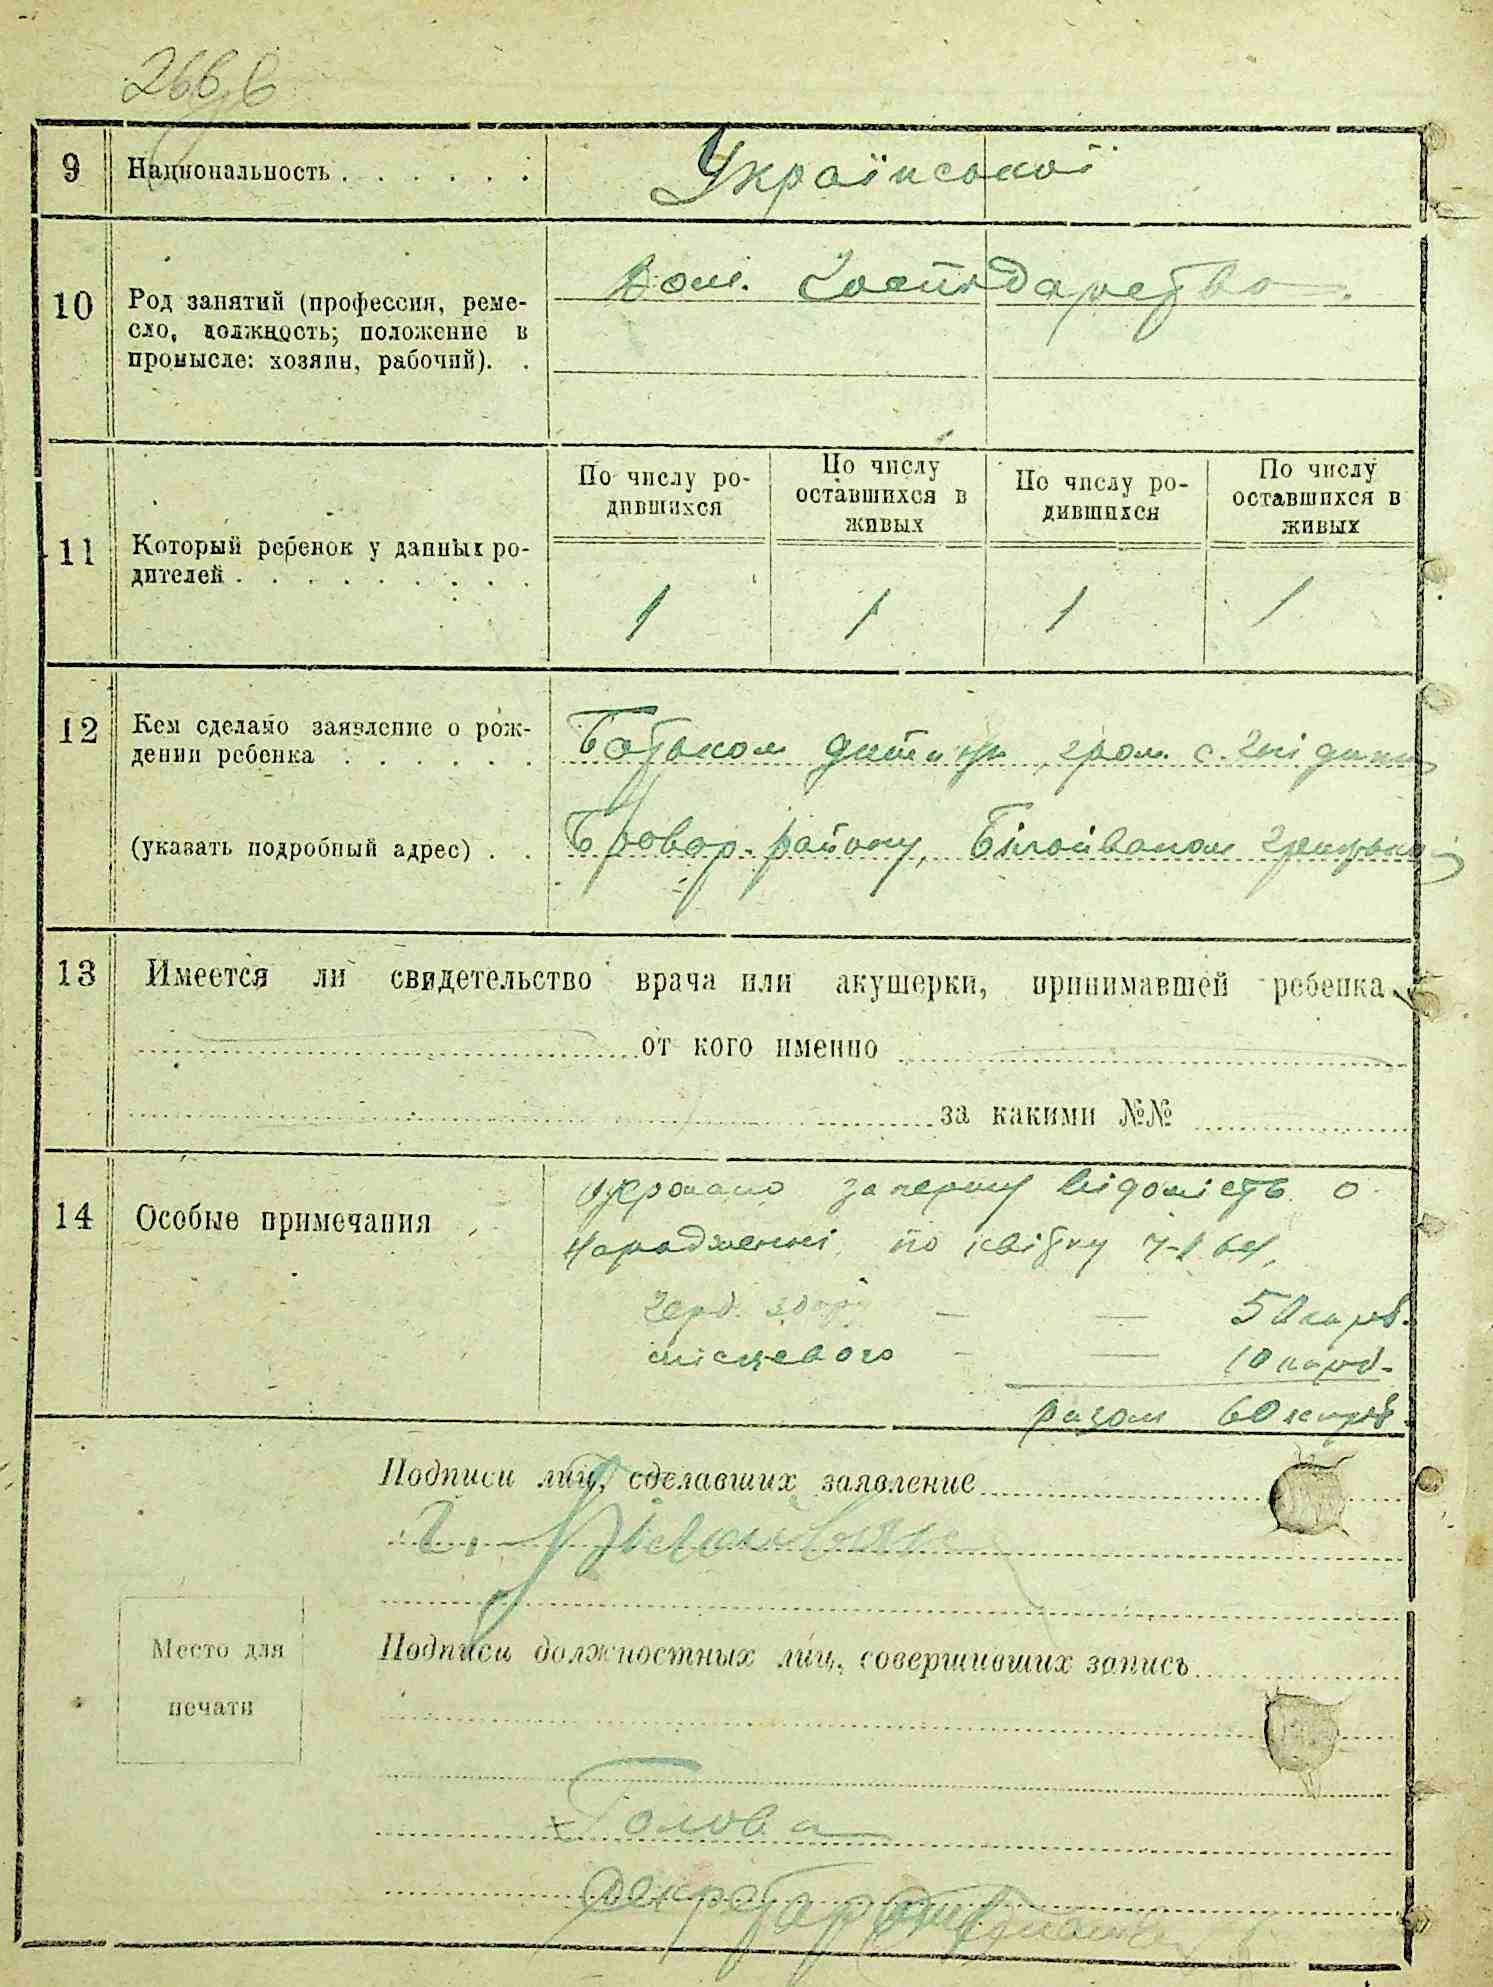 266
9 Национальность . . . . . . Української
10 Род занятий (профессия, реме-
сло, должность; положение в
промысле: хозяин, рабочий). .
Дом. Господарство.
11 Который ребенок у данных ро-
дителей . . . . . . . . .
По числу ро-
дившихся
По числу
оставшихся в
живых
По числу ро-
дившихся
По числу
оставшихся в
живых
1 1 1 1
12 Кем сделано заявление о рож-
дении ребенка . . . . . .
Батьком дитини, гром. с.
(указать подробный адрес) . .
Бровар. району, Білоіваном
13 Имеется ли свидетельство врача или акушерки, принимавшей ребенка
от кого именно
за какими №№
14 Особые примечания
за першу відомість о
народженні, по квітку
збору — — 50 карб.
місцевого — — 10 карб.
разом 60 карб.
Подписи лиц, сделавших заявление
Г. Білоіван
Место для
печати
Подписи должностных лиц, совершивших запись
Голова
Секретар